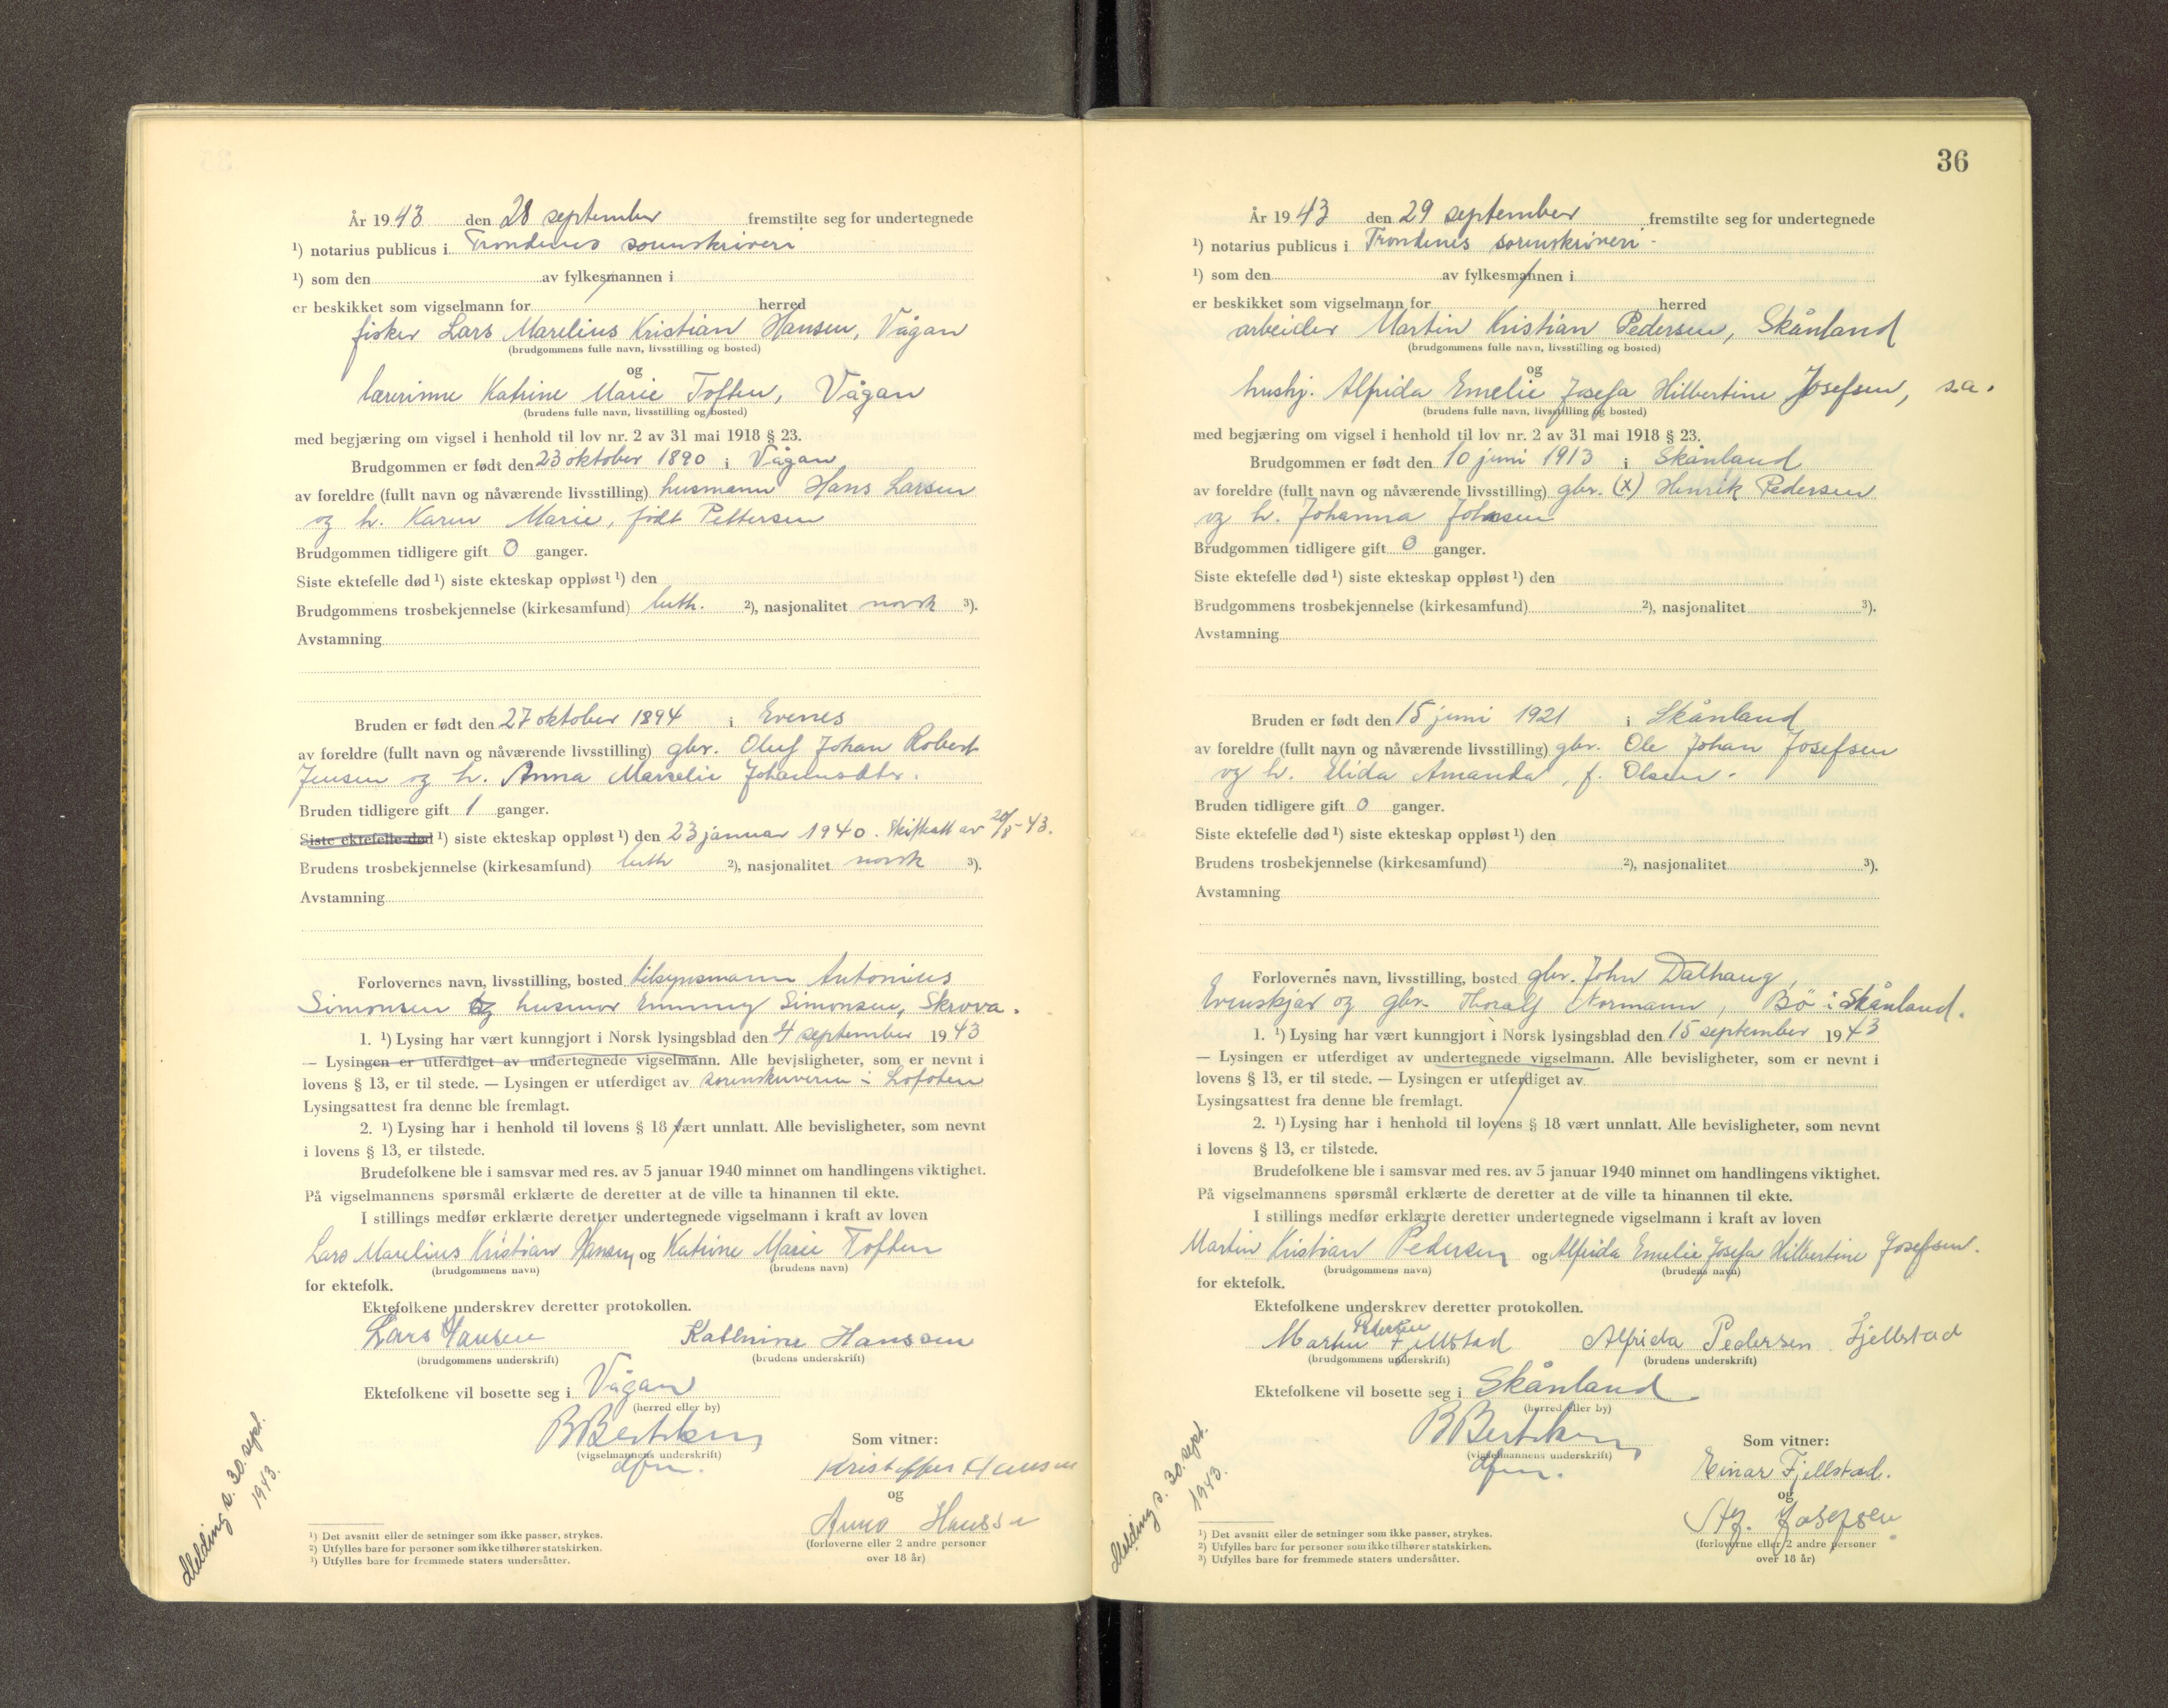 År 1943 den 28 september fremstilte seg for undertegnede
¹) notarius publicus i Trondenes sorenskriveri
¹) som den av fylkesmannen i
er beskikket som vigselmann for herred
fisker Lars Marelius Kristian Hansen, Vågan
(brudgommens fulle navn, livsstilling og bosted)
og
lærerinne Katrine Marie Toften, Vågan
(brudens fulle navn, livsstilling og bosted)
med begjæring om vigsel i henhold til lov nr. 2 av 31 mai 1918 § 23.
Brudgommen er født den 23 oktober 1890 i Vågan
av foreldre (fullt navn og nåværende livsstilling) husmann Hans Larsen
og h. Karen Marie, født Pettersen
Brudgommen tidligere gift 0 ganger.
Siste ektefelle død ¹) siste ekteskap oppløst ¹) den
Brudgommens trosbekjennelse (kirkesamfund) luth. ²), nasjonalitet norsk ³).
Avstamning
Bruden er født den 27 oktober 1894 i Evenes
av foreldre (fullt navn og nåværende livsstilling) gbr. Oluf Johan Robert
Jensen og h. Anna Marselie Johannsdtr.
Bruden tidligere gift 1 ganger.
Siste ektefelle død ¹) siste ekteskap oppløst ¹) den 23 januar 1940. Skifteatt av 20/8-43.
Brudens trosbekjennelse (kirkesamfund) luth ²), nasjonalitet norsk ³).
Avstamning
Forlovernes navn, livsstilling, bosted tilsynsmann Antonius
Simonsen og husmor Emmy Simonsen, Skrova.
1. ¹) Lysing har vært kunngjort i Norsk lysingsblad den 4 september 1943
— Lysingen er utferdiget av undertegnede vigselmann. Alle bevisligheter, som er nevnt i
lovens § 13, er til stede. — Lysingen er utferdiget av sorenskriveren i Lofoten
Lysingsattest fra denne ble fremlagt.
2. ¹) Lysing har i henhold til lovens § 18 vært unnlatt. Alle bevisligheter, som nevnt
i lovens § 13, er tilstede.
Brudefolkene ble i samsvar med res. av 5 januar 1940 minnet om handlingens viktighet.
På vigselmannens spørsmål erklærte de deretter at de ville ta hinannen til ekte.
I stillings medfør erklærte deretter undertegnede vigselmann i kraft av loven
Lars Marelius Kristian Hansen og Katrine Marie Toften
(brudgommens navn) (brudens navn)
for ektefolk.
Ektefolkene underskrev deretter protokollen.
Lars Hansen Kathrine Hanssen
(brudgommens underskrift) (brudens underskrift)
Ektefolkene vil bosette seg i Vågan
(herred eller by)
B Bertelsen
(vigselmannens underskrift)
dfm.
Som vitner:
Kristoffer Hansen
og
Anna Hanssen
(forloverne eller 2 andre personer
over 18 år)
Melding s. 30. sept.
1943.
¹) Det avsnitt eller de setninger som ikke passer, strykes.
²) Utfylles bare for personer som ikke tilhører statskirken.
³) Utfylles bare for fremmede staters undersåtter.
36
År 1943 den 29 september fremstilte seg for undertegnede
¹) notarius publicus i Trondenes sorenskriveri
¹) som den av fylkesmannen i
er beskikket som vigselmann for herred
arbeider Martin Kristian Pedersen, Skånland
(brudgommens fulle navn, livsstilling og bosted)
og
hushj. Alfrida Emelie Josefa Hilbertine Josefsen, s.a.
(brudens fulle navn, livsstilling og bosted)
med begjæring om vigsel i henhold til lov nr. 2 av 31 mai 1918 § 23.
Brudgommen er født den 10 juni 1913 i Skånland
av foreldre (fullt navn og nåværende livsstilling) gbr. (x) Henrik Pedersen
og h. Johanna Johnsen
Brudgommen tidligere gift 0 ganger.
Siste ektefelle død ¹) siste ekteskap oppløst ¹) den
Brudgommens trosbekjennelse (kirkesamfund) ²), nasjonalitet ³).
Avstamning
Bruden er født den 15 juni 1921 i Skånland
av foreldre (fullt navn og nåværende livsstilling) gbr. Ole Johan Josefsen
og h. Elida Amanda, f. Olsen.
Bruden tidligere gift 0 ganger.
Siste ektefelle død ¹) siste ekteskap oppløst ¹) den
Brudens trosbekjennelse (kirkesamfund) ²), nasjonalitet ³).
Avstamning
Forlovernes navn, livsstilling, bosted gbr. John Dalhaug,
Evenskjær og gbr. Thoralf Normann, Bö i Skånland.
1. ¹) Lysing har vært kunngjort i Norsk lysingsblad den 15 september 1943
— Lysingen er utferdiget av undertegnede vigselmann. Alle bevisligheter, som er nevnt i
lovens § 13, er til stede. — Lysingen er utferdiget av
Lysingsattest fra denne ble fremlagt.
2. ¹) Lysing har i henhold til lovens § 18 vært unnlatt. Alle bevisligheter, som nevnt
i lovens § 13, er tilstede.
Brudefolkene ble i samsvar med res. av 5 januar 1940 minnet om handlingens viktighet.
På vigselmannens spørsmål erklærte de deretter at de ville ta hinannen til ekte.
I stillings medfør erklærte deretter undertegnede vigselmann i kraft av loven
Martin Kristian Pedersen og Alfrida Emelie Josefa Hilbertine Josefsen.
(brudgommens navn) (brudens navn)
for ektefolk.
Ektefolkene underskrev deretter protokollen.
Martin Pedersen Fjellstad Alfrida Pedersen Fjellstad
(brudgommens underskrift) (brudens underskrift)
Ektefolkene vil bosette seg i Skånland
(herred eller by)
B Bertelsen
(vigselmannens underskrift)
dfm.
Som vitner:
Einar Fjellstad.
og
Josefsen
(forloverne eller 2 andre personer
over 18 år)
Melding s. 30. sept.
1943.
¹) Det avsnitt eller de setninger som ikke passer, strykes.
²) Utfylles bare for personer som ikke tilhører statskirken.
³) Utfylles bare for fremmede staters undersåtter.